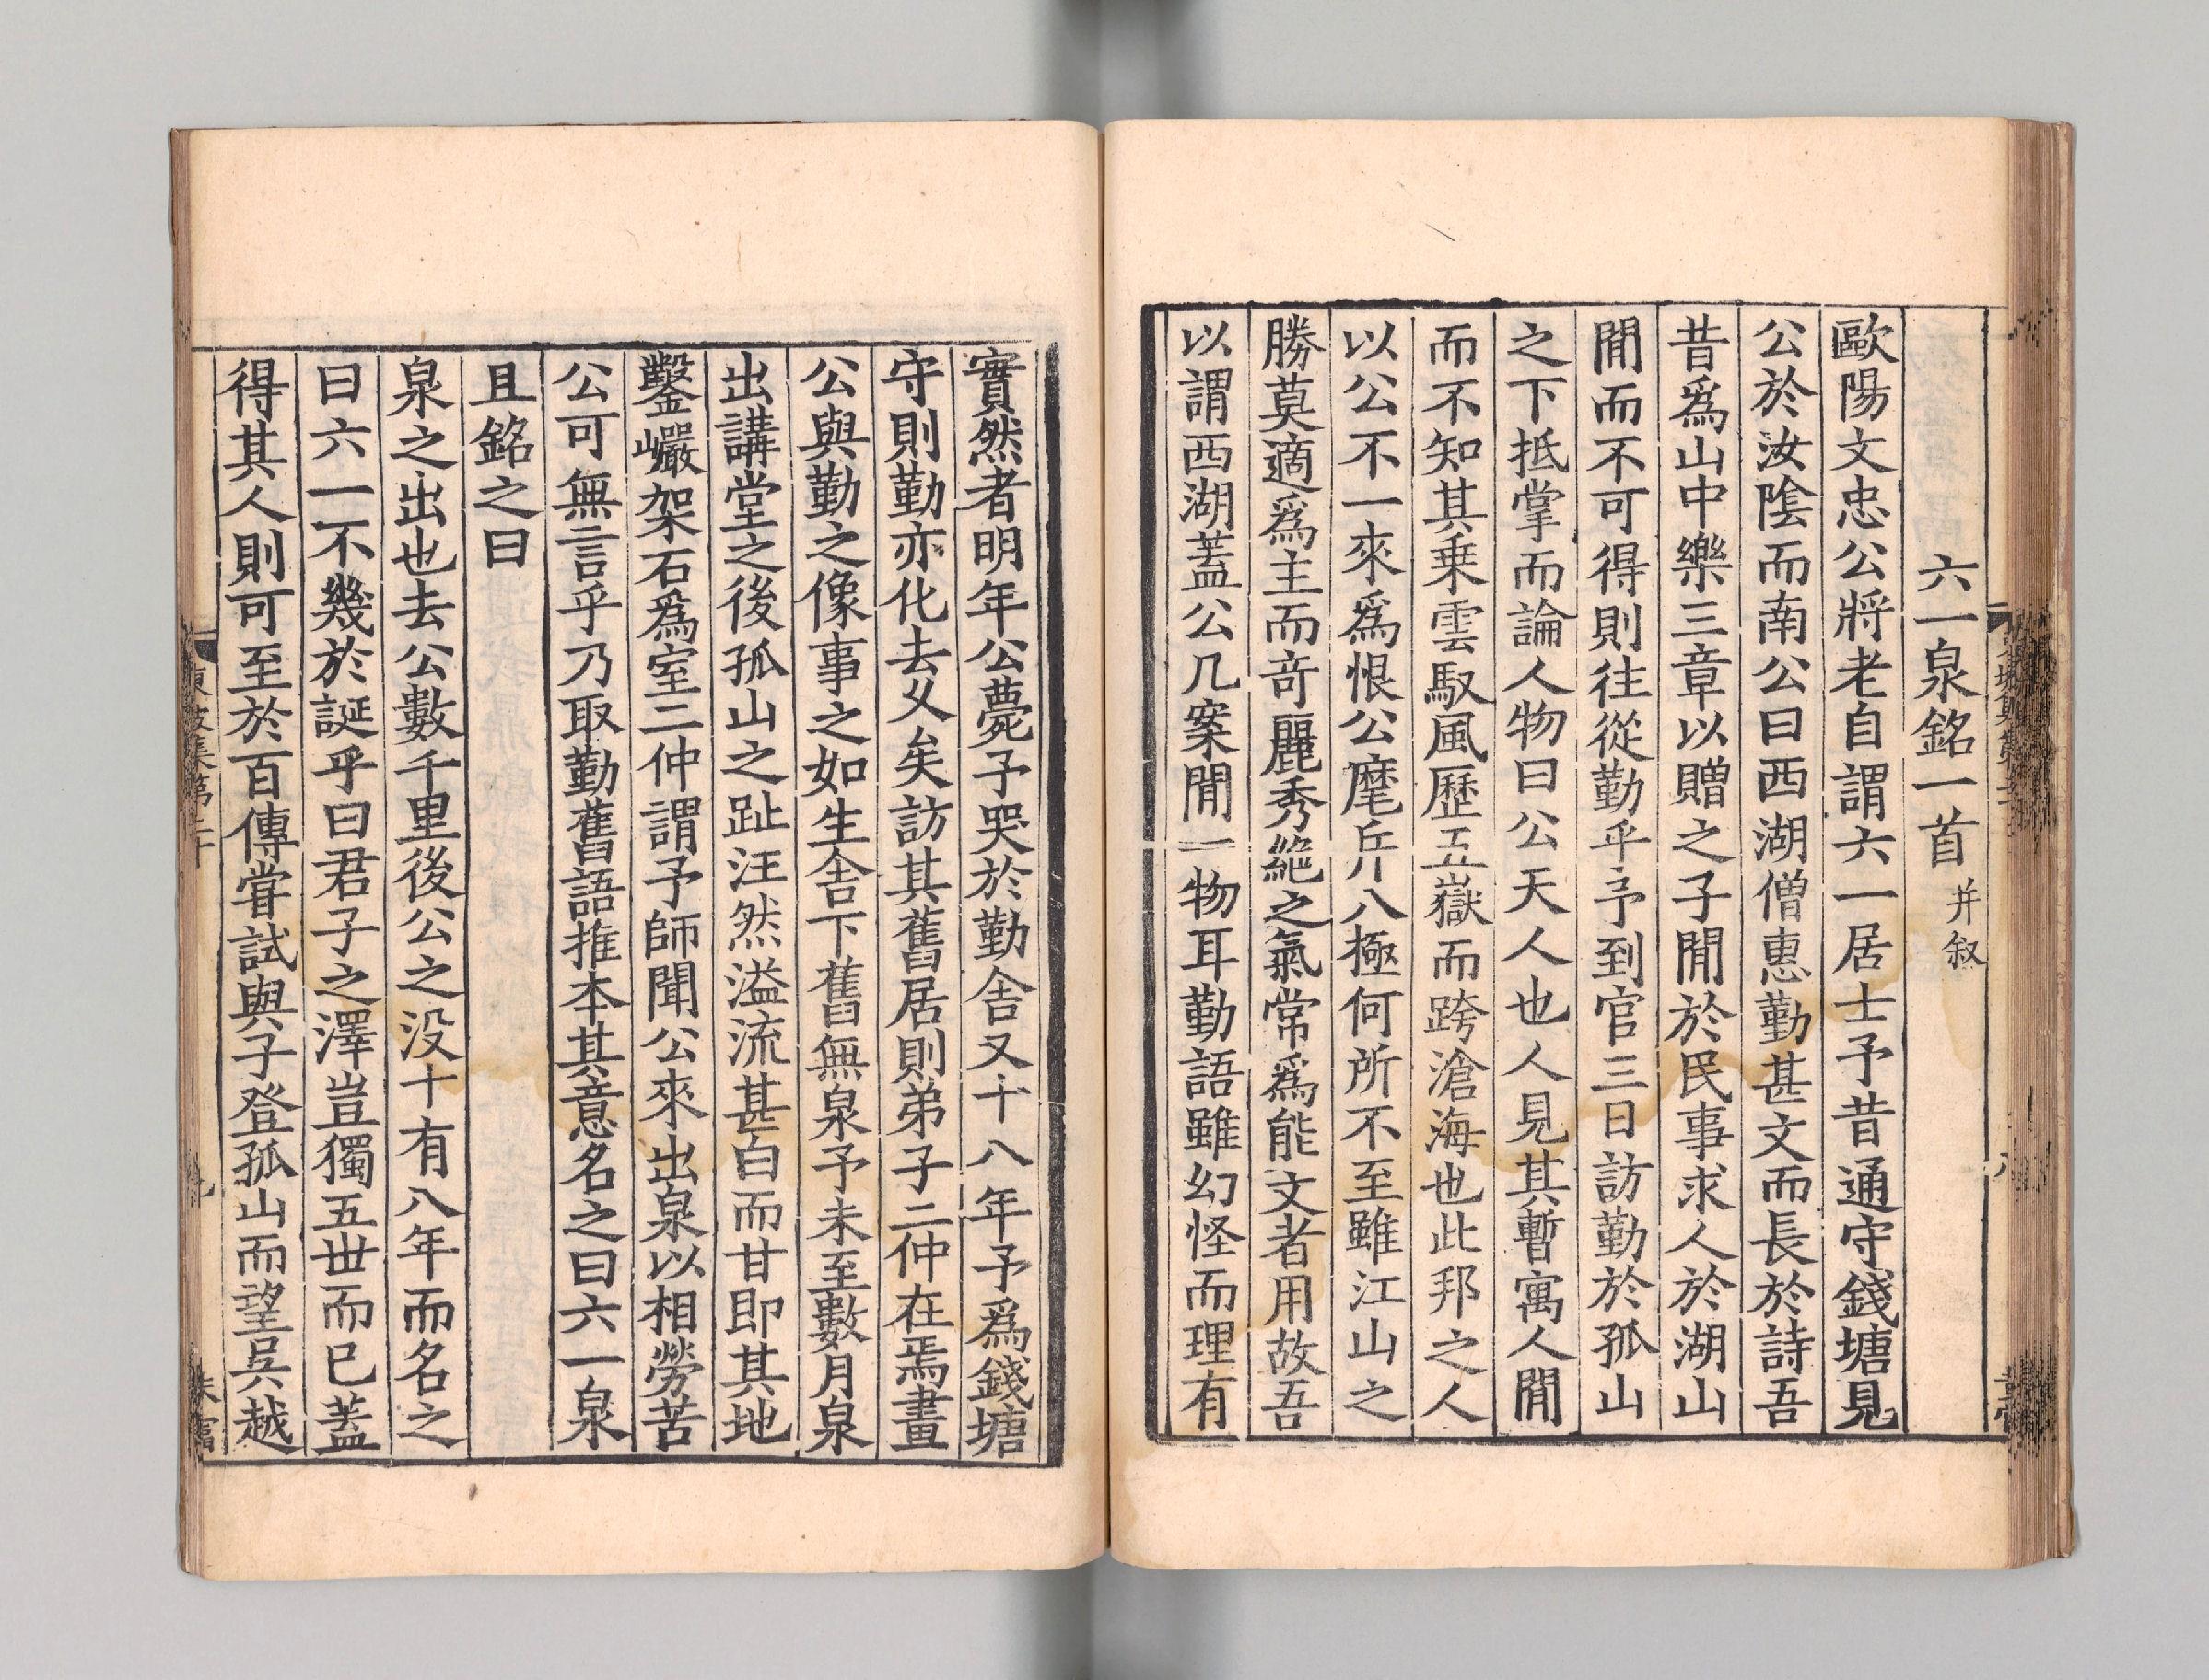 六一泉銘一首并叙
歐陽文忠公將老自謂六一居士予昔通守錢塘見
公於汝陰而南公曰西湖僧惠勤甚文而長於詩吾
昔爲山中樂三章以贈之子閒於民事求人於湖山
閒而不可得則往從勤乎予到官三日訪勤於孤山
之下抵掌而論人物曰公天人也人見其暫寓人閒
而不知其乗雲馭風歷五嶽而跨滄海也此邦之人
以公不一來爲恨公麾斥八極何所不至雖江山之
勝莫適爲主而奇麗秀絶之氣常爲能文者用故吾
以謂西湖蓋公几案閒一物耳勤語雖幻怪而理有
實然者明年公薨予哭於勤舎又十八年予爲錢塘
守則勤亦化去乆矣訪其舊居則弟子二仲在焉畫
公與勤之像事之如生舎下舊無泉予未至數月泉
出講堂之後孤山之趾汪然溢流甚白而甘即其地
鑿巖架石爲室二仲謂予師聞公來出泉以相勞苦
公可無言乎乃取勤舊語推本其意名之曰六一泉
且銘之曰
泉之出也去公數千里後公之没十有八年而名之
曰六一不幾於誕乎曰君子之澤豈獨五丗而已蓋
得其人則可至於百傳甞試與子登孤山而望吳越
東坡集第二十